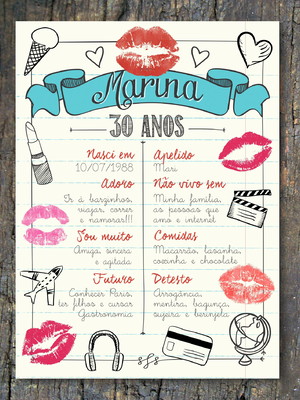 Marina
30 ANOS
Nasci em
10/07/1988
Apelido
Mari
Adoro
Ir á barzinhos,
viajar, correr
e namorar!!!
Não vivo sem
Minha família,
as pessoas que
amo e internet
Sou muito
Amiga, sincera
e agitada
Comidas
Macarrão, lasanha,
coxinha e chocolate
Futuro
Conhecer Paris,
ter filhos e cursar
Gastronomia
Detesto
Arrogância,
mentira, bagunça,
sujeira e berinjela